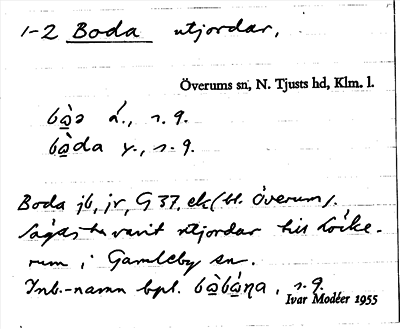 1-2 Boda utjordar,
Överums sn, N. Tjusts hd, Klm. l.
bà̱ə ä., s. g.
bà̱da y., s. g.
Boda jb, jr, G 37, ek (bl. Överum).
Sägas ha varit utjordar till Loïke-
rum i Gamleby sn.
Inb.-namn bpl. bà̱bána, s. g.
Ivar Modéer 1955